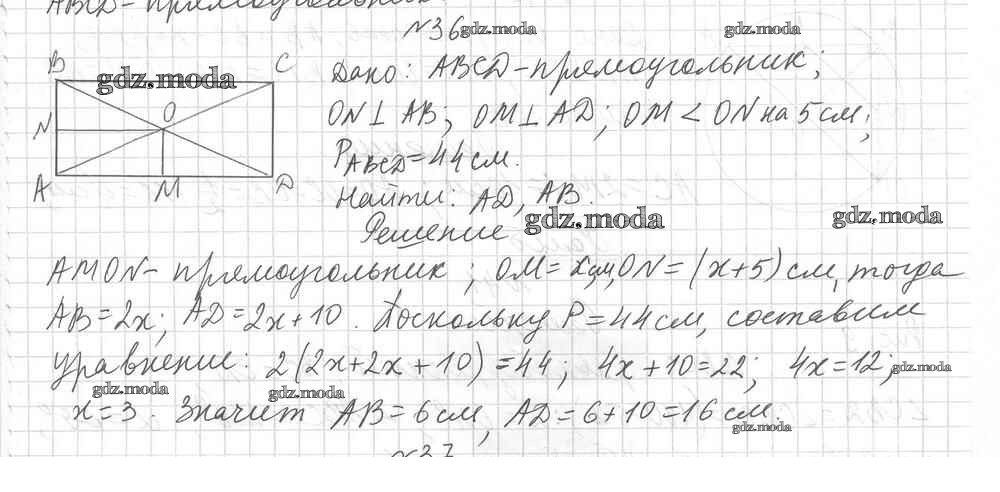 ABCD - прямоугольник.
№36 gdz.moda gdz.moda
B C
gdz.moda
O
N
A M D
Дано: ABCD - прямоугольник;
ON ⊥ AB; OM ⊥ AD; OM < ON на 5 см;
P ABCD = 44 см.
Найти: AD, AB.
Решение gdz.moda gdz.moda
AMON - прямоугольник; OM = x см, ON = (x+5) см, тогда
AB = 2x; AD = 2x + 10. Поскольку P = 44 см, составим
уравнение: 2(2x + 2x + 10) = 44; 4x + 10 = 22; 4x = 12; gdz.moda
gdz.moda gdz.moda
x = 3. Значит AB = 6 см, AD = 6 + 10 = 16 см.
gdz.moda
№37